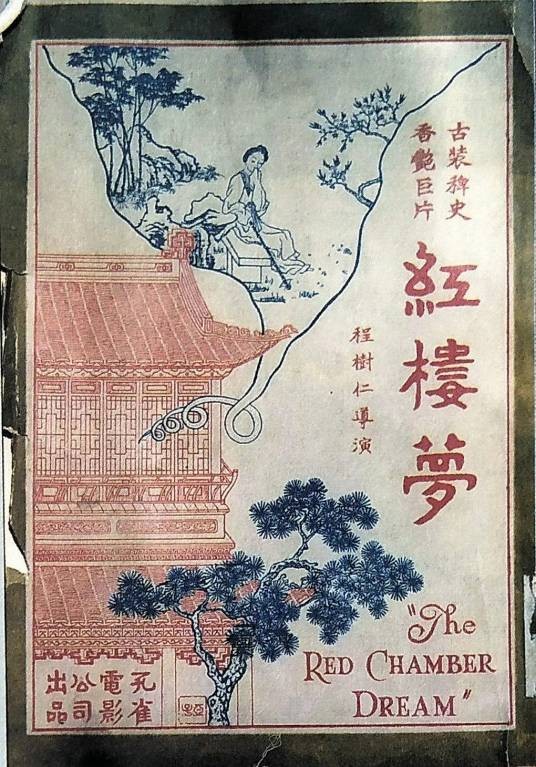 古裝稗史
香艷巨片
紅樓夢
程樹仁導演
孔雀
電影
公司
出品
"The
RED CHAMBER
DREAM"